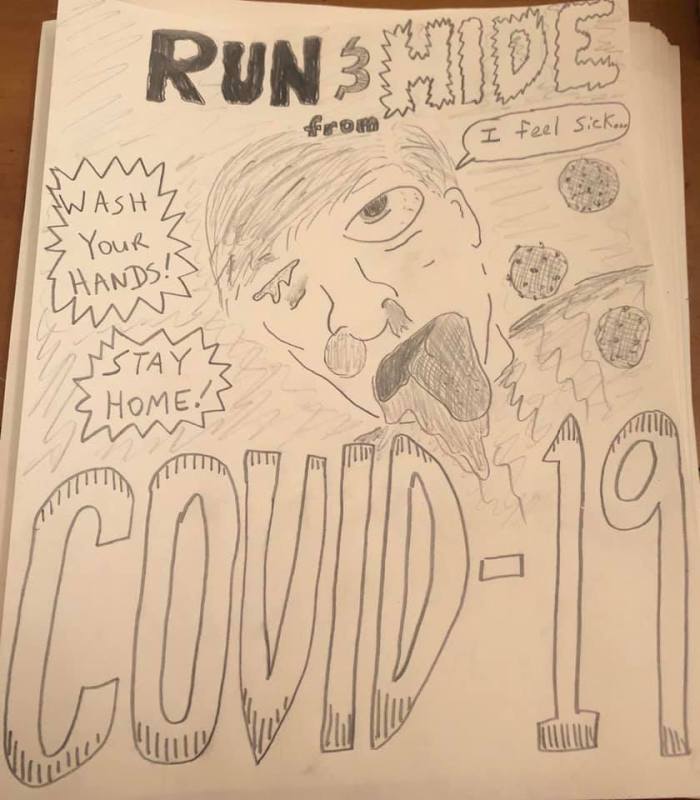 RUN & HIDE
from
I feel sick...
WASH
YOUR
HANDS!
STAY
HOME!
COVID-19